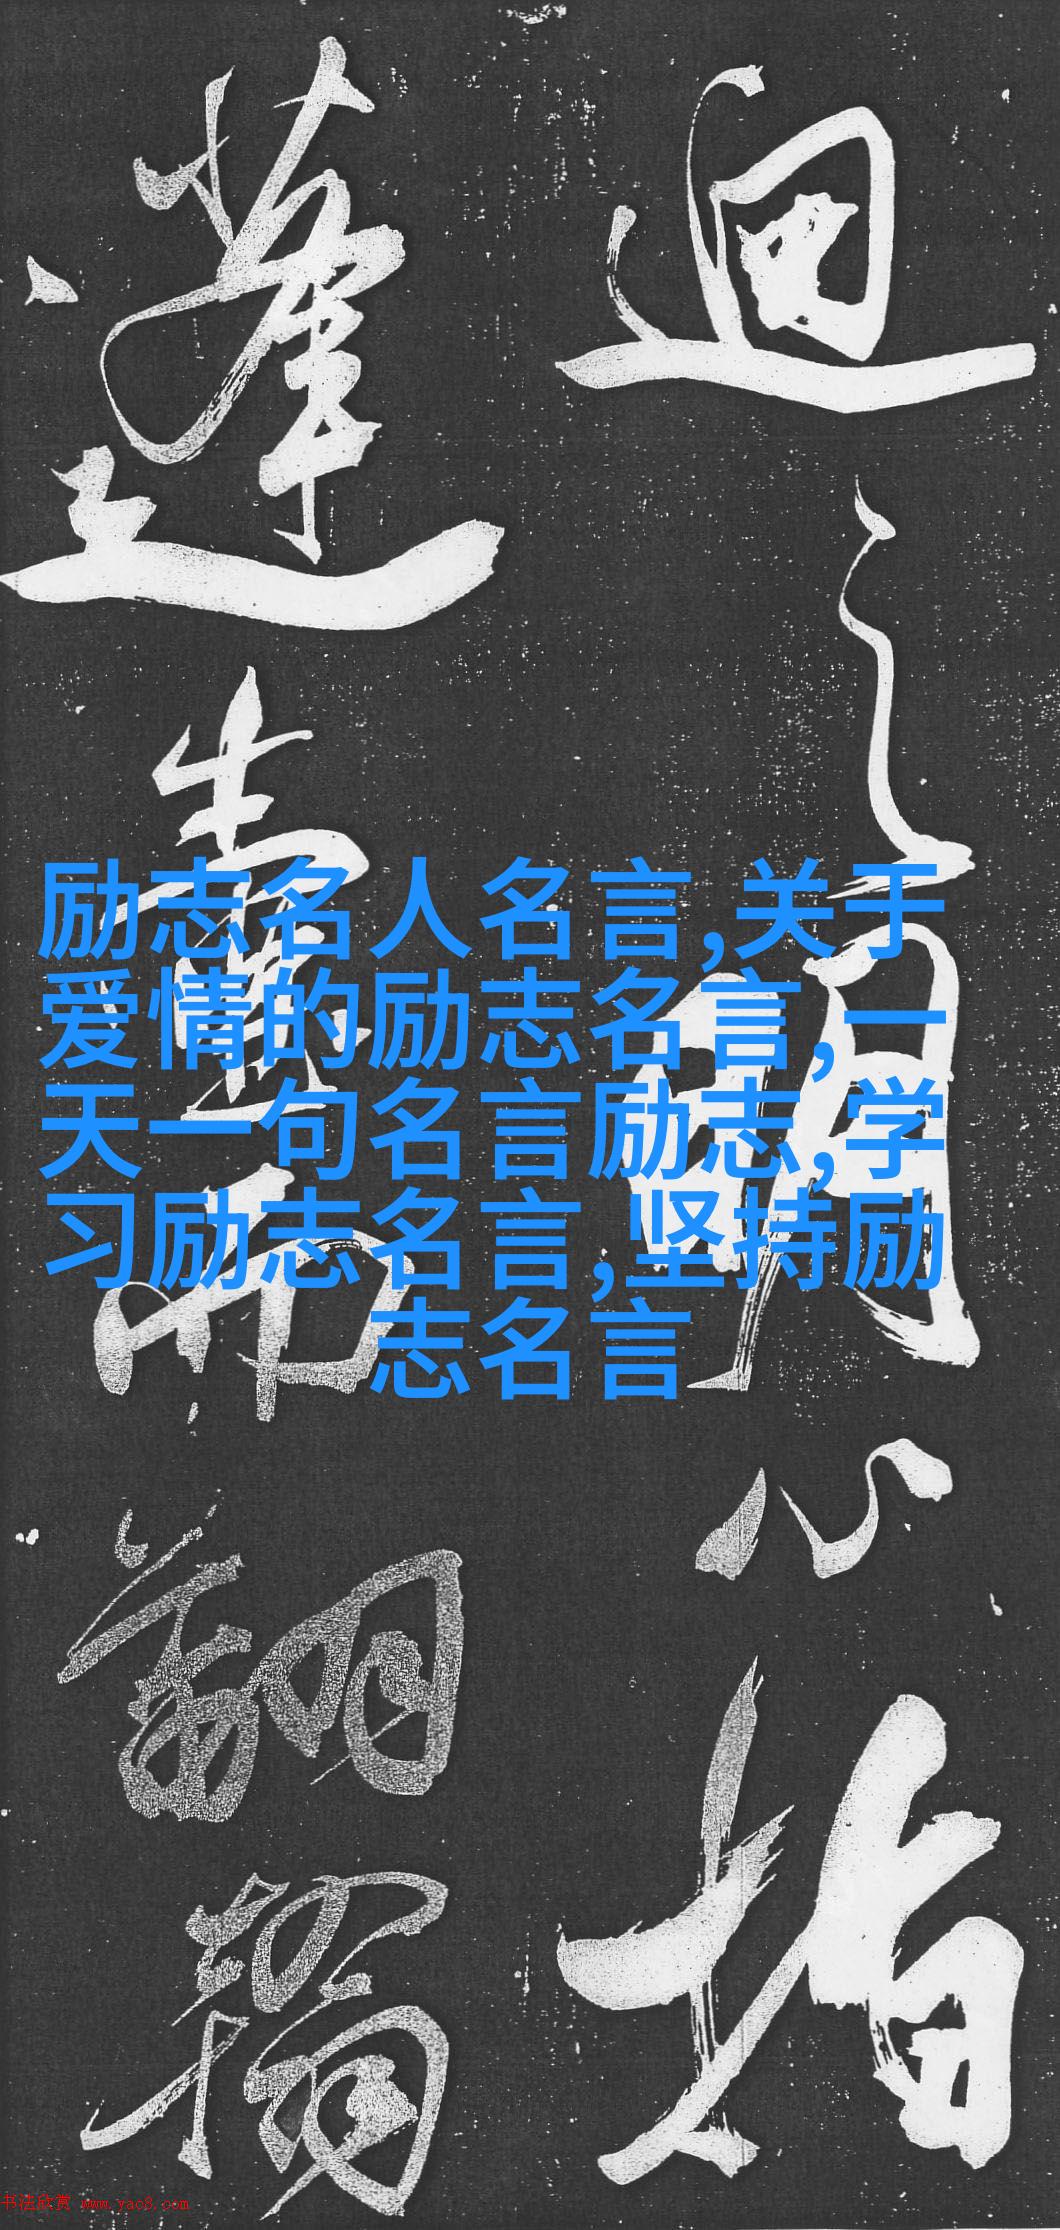 迴之朔
心指
蓬壺而
翻翰
励志名人名言,关于
爱情的励志名言,一
天一句名言励志,学
习励志名言,坚持励
志名言
书法欣赏 www.yac8.com